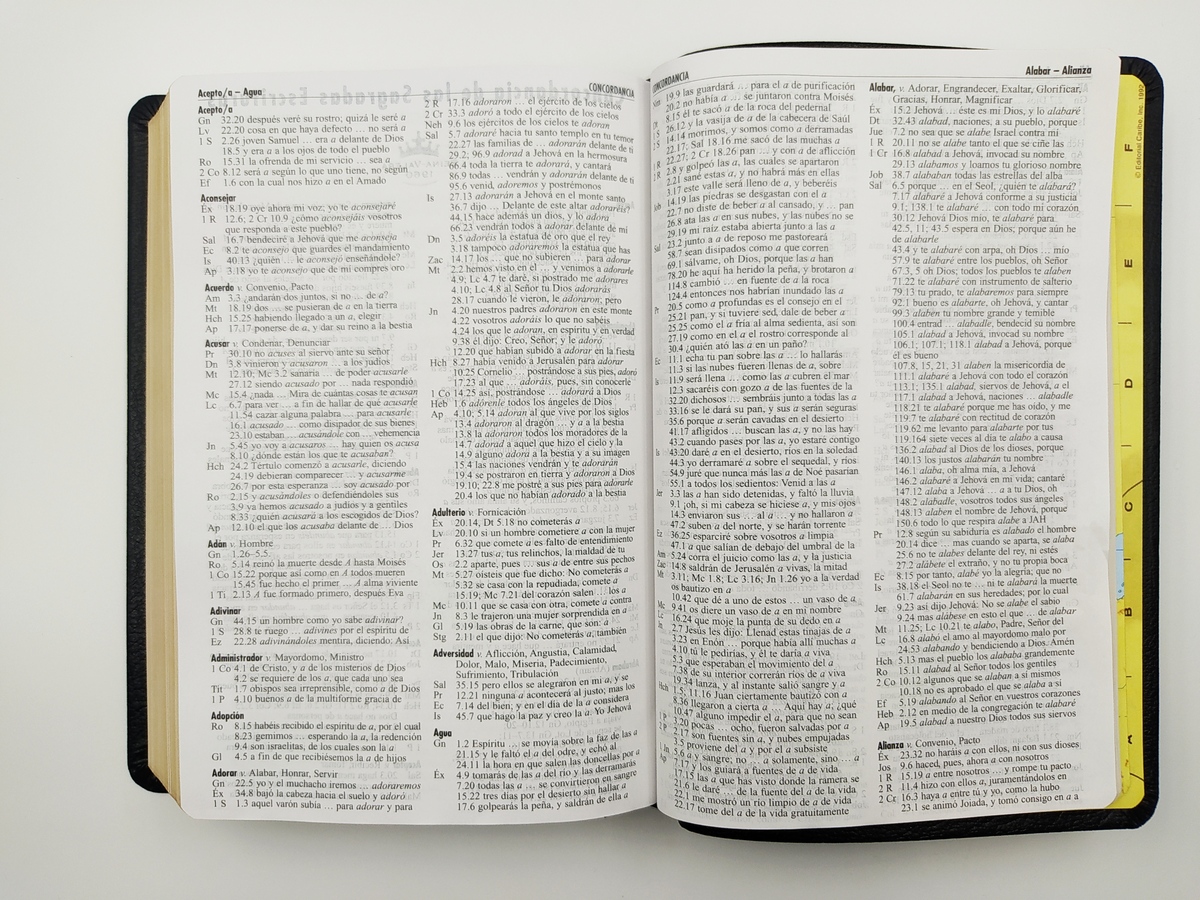 Acepto/a – Agua
CONCORDANCIA
Acepto/a
Gn 32.20 después veré su rostro; quizá le seré a
Lv 22.20 cosa en que haya defecto … no será a
1 S 2.26 joven Samuel … era a delante de Dios
18.5 y era a a los ojos de todo el pueblo
Ro 15.31 la ofrenda de mi servicio … sea a
2 Co 8.12 será a según lo que uno tiene, no según
Ef 1.6 con la cual nos hizo a en el Amado
Aconsejar
Éx 18.19 oye ahora mi voz; yo te aconsejaré
1 R 12.6; 2 Cr 10.9 ¿cómo aconsejáis vosotros
que responda a este pueblo?
Sal 16.7 bendeciré a Jehová que me aconseja
Ec 8.2 te aconsejo que guardes el mandamiento
Is 40.13 ¿quién … le aconsejó enseñándole?
Ap 3.18 yo te aconsejo que de mí compres oro
Acuerdo v. Convenio, Pacto
Am 3.3 ¿andarán dos juntos, si no … de a?
Mt 18.19 dos … se pusieran de a en la tierra
Hch 15.25 habiendo llegado a un a, elegir
Ap 17.17 ponerse de a, y dar su reino a la bestia
Acusar v. Condenar, Denunciar
Pr 30.10 no acuses al siervo ante su señor
Dn 3.8 vinieron y acusaron … a los judíos
Mt 12.10; Mc 3.2 sanaría … de poder acusarle
27.12 siendo acusado por … nada respondió
Mc 15.4 ¿nada … Mira de cuántas cosas te acusan
Lc 6.7 para ver … a fin de hallar de qué acusarle
11.54 cazar alguna palabra … para acusarle
16.1 acusado … como disipador de sus bienes
23.10 estaban … acusándole con … vehemencia
Jn 5.45 yo voy a acusaros … hay quien os acusa
8.10 ¿dónde están los que te acusaban?
Hch 24.2 Tértulo comenzó a acusarle, diciendo
24.19 debieran comparecer … y acusarme
26.7 por esta esperanza … soy acusado por
Ro 2.15 y acusándoles o defendiéndoles sus
3.9 ya hemos acusado a judíos y a gentiles
8.33 ¿quién acusará a los escogidos de Dios?
Ap 12.10 el que los acusaba delante de … Dios
Adán v. Hombre
Gn 1.26–5.5.
Ro 5.14 reinó la muerte desde A hasta Moisés
1 Co 15.22 porque así como en A todos mueren
15.45 fue hecho el primer … A alma viviente
1 Ti 2.13 A fue formado primero, después Eva
Adivinar
Gn 44.15 un hombre como yo sabe adivinar?
1 S 28.8 te ruego … adivines por el espíritu de
Ez 22.28 adivinándoles mentira, diciendo: Así
Administrador v. Mayordomo, Ministro
1 Co 4.1 de Cristo, y a de los misterios de Dios
4.2 se requiere de los a, que cada uno sea
Tit 1.7 obispo sea irreprensible, como a de Dios
1 P 4.10 buenos a de la multiforme gracia de
Adopción
Ro 8.15 habéis recibido el espíritu de a, por el cual
8.23 gemimos … esperando la a, la redención
9.4 son israelitas, de los cuales son la a
Gl 4.5 a fin de que recibiésemos la a de hijos
Adorar v. Alabar, Honrar, Servir
Gn 22.5 yo y el muchacho iremos … adoraremos
Éx 34.8 bajó la cabeza hacia el suelo y adoró
1 S 1.3 aquel varón subía … para adorar y para
2 R 17.16 adoraron … el ejército de los cielos
2 Cr 33.3 adoró a todo el ejército de los cielos
Neh 9.6 los ejércitos de los cielos te adoran
Sal 5.7 adoraré hacia tu santo templo en tu temor
22.27 las familias de … adorarán delante de ti
29.2; 96.9 adorad a Jehová en la hermosura
66.4 toda la tierra te adorará, y cantará
86.9 todas … vendrán y adorarán delante de ti
95.6 venid, adoremos y postrémonos
Is 27.13 adorarán a Jehová en el monte santo
36.7 dijo … Delante de este altar adoraréis?
44.15 hace además un dios, y lo adora
66.23 vendrán todos a adorar delante de mí
Dn 3.5 adoréis la estatua de oro que el rey
3.18 tampoco adoraremos la estatua que has
Zac 14.17 los … que no subieren … para adorar
Mt 2.2 hemos visto en el … y venimos a adorarle
4.9; Lc 4.7 te daré, si postrado me adorares
4.10; Lc 4.8 al Señor tu Dios adorarás
28.17 cuando le vieron, le adoraron; pero
Jn 4.20 nuestros padres adoraron en este monte
4.22 vosotros adoráis lo que no sabéis
4.24 los que le adoran, en espíritu y en verdad
9.38 él dijo: Creo, Señor; y le adoró
12.20 que habían subido a adorar en la fiesta
Hch 8.27 había venido a Jerusalén para adorar
10.25 Cornelio … postrándose a sus pies, adoró
17.23 al que … adoráis, pues, sin conocerle
1 Co 14.25 así, postrándose … adorará a Dios
Heb 1.6 adórenle todos los ángeles de Dios
Ap 4.10; 5.14 adoran al que vive por los siglos
13.4 adoraron al dragón … y a a la bestia
13.8 la adoraron todos los moradores de la
14.7 adorad a aquel que hizo el cielo y la
14.9 alguno adora a la bestia y a su imagen
15.4 las naciones vendrán y te adorarán
19.4 se postraron en tierra y adoraron a Dios
19.10; 22.8 me postré a sus pies para adorarle
20.4 los que no habían adorado a la bestia
Adulterio v. Fornicación
Éx 20.14, Dt 5.18 no cometerás a
Lv 20.10 si un hombre cometiere a con la mujer
Pr 6.32 que comete a es falto de entendimiento
Jer 13.27 tus a, tus relinchos, la maldad de tu
Os 2.2 aparte, pues … sus a de entre sus pechos
Mt 5.27 oísteis que fue dicho: No cometerás a
5.32 se casa con la repudiada, comete a
15.19; Mc 7.21 del corazón salen … los a
Mc 10.11 que se casa con otra, comete a contra
Jn 8.3 le trajeron una mujer sorprendida en a
Gl 5.19 las obras de la carne, que son: a
Stg 2.11 el que dijo: No cometerás a, también
Adversidad v. Aflicción, Angustia, Calamidad,
Dolor, Malo, Miseria, Padecimiento,
Sufrimiento, Tribulación
Sal 35.15 pero ellos se alegraron en mi a, y se
Pr 12.21 ninguna a acontecerá al justo; mas los
Ec 7.14 del bien; y en el día de la a considera
Is 45.7 que hago la paz y creo la a. Yo Jehová
Agua
Gn 1.2 Espíritu … se movía sobre la faz de las a
21.15 y le faltó el a del odre, y echó al
24.11 la hora en que salen las doncellas por a
Éx 4.9 tomarás de las a del río y las derramarás
7.20 todas las a … se convirtieron en sangre
15.22 tres días por el desierto sin hallar a
17.6 golpearás la peña, y saldrán de ella a
CONCORDANCIA
Alabar – Alianza
19.9 las guardará … para el a de purificación
20.2 no había a … se juntaron contra Moisés
8.15 él te sacó a de la roca del pedernal
26.12 y la vasija de a de la cabecera de Saúl
14.14 morimos, y somos como a derramadas
22.17; Sal 18.16 me sacó de las muchas a
22.27; 2 Cr 18.26 pan … y con a de aflicción
2.8 y golpeó las a, las cuales se apartaron
2.21 sané estas a, y no habrá más en ellas
3.17 este valle será lleno de a, y beberéis
14.19 las piedras se desgastan con el a
22.7 no diste de beber a al cansado, y … pan
26.8 ata las a en sus nubes, y las nubes no se
29.19 mi raíz estaba abierta junto a las a
Sal 23.2 junto a a de reposo me pastoreará
58.7 sean disipados como a que corren
69.1 sálvame, oh Dios, porque las a han
78.20 he aquí ha herido la peña, y brotaron a
114.8 cambió … en fuente de a la roca
124.4 entonces nos habrían inundado las a
Pr 20.5 como a profundas es el consejo en el
25.21 pan, y si tuviere sed, dale de beber a
25.25 como el a fría al alma sedienta, así son
27.19 como en el a el rostro corresponde al
30.4 ¿quién ató las a en un paño?
11.1 echa tu pan sobre las a … lo hallarás
11.3 si las nubes fueren llenas de a, sobre
11.9 será llena … como las a cubren el mar
12.3 sacaréis con gozo a de las fuentes de la
32.20 dichosos … sembráis junto a todas las a
33.16 se le dará su pan, y sus a serán seguras
35.6 porque a serán cavadas en el desierto
41.17 afligidos … buscan las a, y no las hay
43.2 cuando pases por las a, yo estaré contigo
43.20 daré a en el desierto, ríos en la soledad
44.3 yo derramaré a sobre el sequedal, y ríos
54.9 juré que nunca más las a de Noé pasarían
55.1 a todos los sedientos: Venid a las a
Jer 3.3 las a han sido detenidas, y faltó la lluvia
9.1 ¡oh, si mi cabeza se hiciese a, y mis ojos
14.3 enviaron sus … al a … y no hallaron a
47.2 suben a del norte, y se harán torrente
Ez 36.25 esparciré sobre vosotros a limpia
47.1 a que salían de debajo del umbral de la
Am 5.24 corra el juicio como las a, y la justicia
Zac 14.8 saldrán de Jerusalén a vivas, la mitad
Mt 3.11; Mc 1.8; Lc 3.16; Jn 1.26 yo a la verdad
os bautizo en a
10.42 que dé a uno de estos … un vaso de a
Mc 9.41 os diere un vaso de a en mi nombre
Lc 16.24 que moje la punta de su dedo en a
2.7 Jesús les dijo: Llenad estas tinajas de a
3.23 en Enón … porque había allí muchas a
4.10 tú le pedirías, y él te daría a viva
5.3 que esperaban el movimiento del a
7.38 de su interior correrán ríos de a viva
19.34 lanza, y al instante salió sangre y a
Hch 1.5; 11.16 Juan ciertamente bautizó con a
8.36 llegaron a cierta a … Aquí hay a, ¿qué
10.47 alguno impedir el a, para que no sean
3.20 pocas … ocho, fueron salvadas por a
2.17 son fuentes sin a, y nubes empujadas
3.5 proviene del a y por el a subsiste
5.6 a y sangre; no … a solamente, sino … a
7.17 y los guiará a fuentes de a de vida
17.15 las a que has visto donde la ramera se
21.6 le daré … de la fuente del a de la vida
22.1 me mostró un río limpio de a de vida
22.17 tome del a de la vida gratuitamente
Alabar, v. Adorar, Engrandecer, Exaltar, Glorificar,
Gracias, Honrar, Magnificar
Éx 15.2 Jehová … éste es mi Dios, y lo alabaré
Dt 32.43 alabad, naciones, a su pueblo, porque
Jue 7.2 no sea que se alabe Israel contra mí
1 R 20.11 no se alabe tanto el que se ciñe las
1 Cr 16.8 alabad a Jehová, invocad su nombre
29.13 alabamos y loamos tu glorioso nombre
Job 38.7 alababan todas las estrellas del alba
Sal 6.5 porque … en el Seol, ¿quién te alabará?
7.17 alabaré a Jehová conforme a su justicia
9.1; 138.1 te alabaré … con todo mi corazón
30.12 Jehová Dios mío, te alabaré para
42.5, 11; 43.5 espera en Dios; porque aún he
de alabarle
43.4 y te alabaré con arpa, oh Dios … mío
57.9 te alabaré entre los pueblos, oh Señor
67.3, 5 oh Dios; todos los pueblos te alaben
71.22 te alabaré con instrumento de salterio
79.13 tu prado, te alabaremos para siempre
92.1 bueno es alabarte, oh Jehová, y cantar
99.3 alaben tu nombre grande y temible
100.4 entrad … alabadle, bendecid su nombre
105.1 alabad a Jehová, invocad su nombre
106.1; 107.1; 118.1 alabad a Jehová, porque
él es bueno
107.8, 15, 21, 31 alaben la misericordia de
111.1 alabaré a Jehová con todo el corazón
113.1; 135.1 alabad, siervos de Jehová, a el
117.1 alabad a Jehová, naciones … alabadle
118.21 te alabaré porque me has oído, y me
119.7 te alabaré con rectitud de corazón
119.62 me levanto para alabarte por tus
119.164 siete veces al día te alabo a causa
136.2 alabad al Dios de los dioses, porque
140.13 los justos alabarán tu nombre
146.1 alaba, oh alma mía, a Jehová
146.2 alabaré a Jehová en mi vida; cantaré
147.12 alaba a Jehová … a tu Dios, oh
148.2 alabadle, vosotros todos sus ángeles
148.13 alaben el nombre de Jehová, porque
150.6 todo lo que respira alabe a JAH
Pr 12.8 según su sabiduría es alabado el hombre
20.14 dice … mas cuando se aparta, se alaba
25.6 no te alabes delante del rey, ni estés
27.2 alábete el extraño, y no tu propia boca
Ec 8.15 por tanto, alabé yo la alegría; que no
Is 38.18 el Seol no te … ni te alabará la muerte
61.7 alabarán en sus heredades; por lo cual
Jer 9.23 así dijo Jehová: No se alabe el sabio
9.24 mas alábese en esto el que … de alabar
Mt 11.25; Lc 10.21 te alabo, Padre, Señor del
Lc 16.8 alabó el amo al mayordomo malo por
24.53 alabando y bendiciendo a Dios. Amén
Hch 5.13 mas el pueblo los alababa grandemente
Ro 15.11 alabad al Señor todos los gentiles
2 Co 10.12 algunos que se alaban a sí mismos
10.18 no es aprobado el que se alaba a sí
Ef 5.19 alabando al Señor en vuestros corazones
Heb 2.12 en medio de la congregación te alabaré
Ap 19.5 alabad a nuestro Dios todos sus siervos
Alianza v. Convenio, Pacto
Éx 23.32 no haráis a con ellos, ni con sus dioses
Jos 9.6 haced, pues, ahora a con nosotros
1 R 15.19 a entre nosotros … y rompe tu pacto
2 R 11.4 hizo con ellos a, juramentándolos en
2 Cr 16.3 haya a entre tú y yo, como la hubo
23.1 se animó Joiada, y tomó consigo en a a
© Editorial Caribe, Inc. 1992
F
E
D
C
B
A